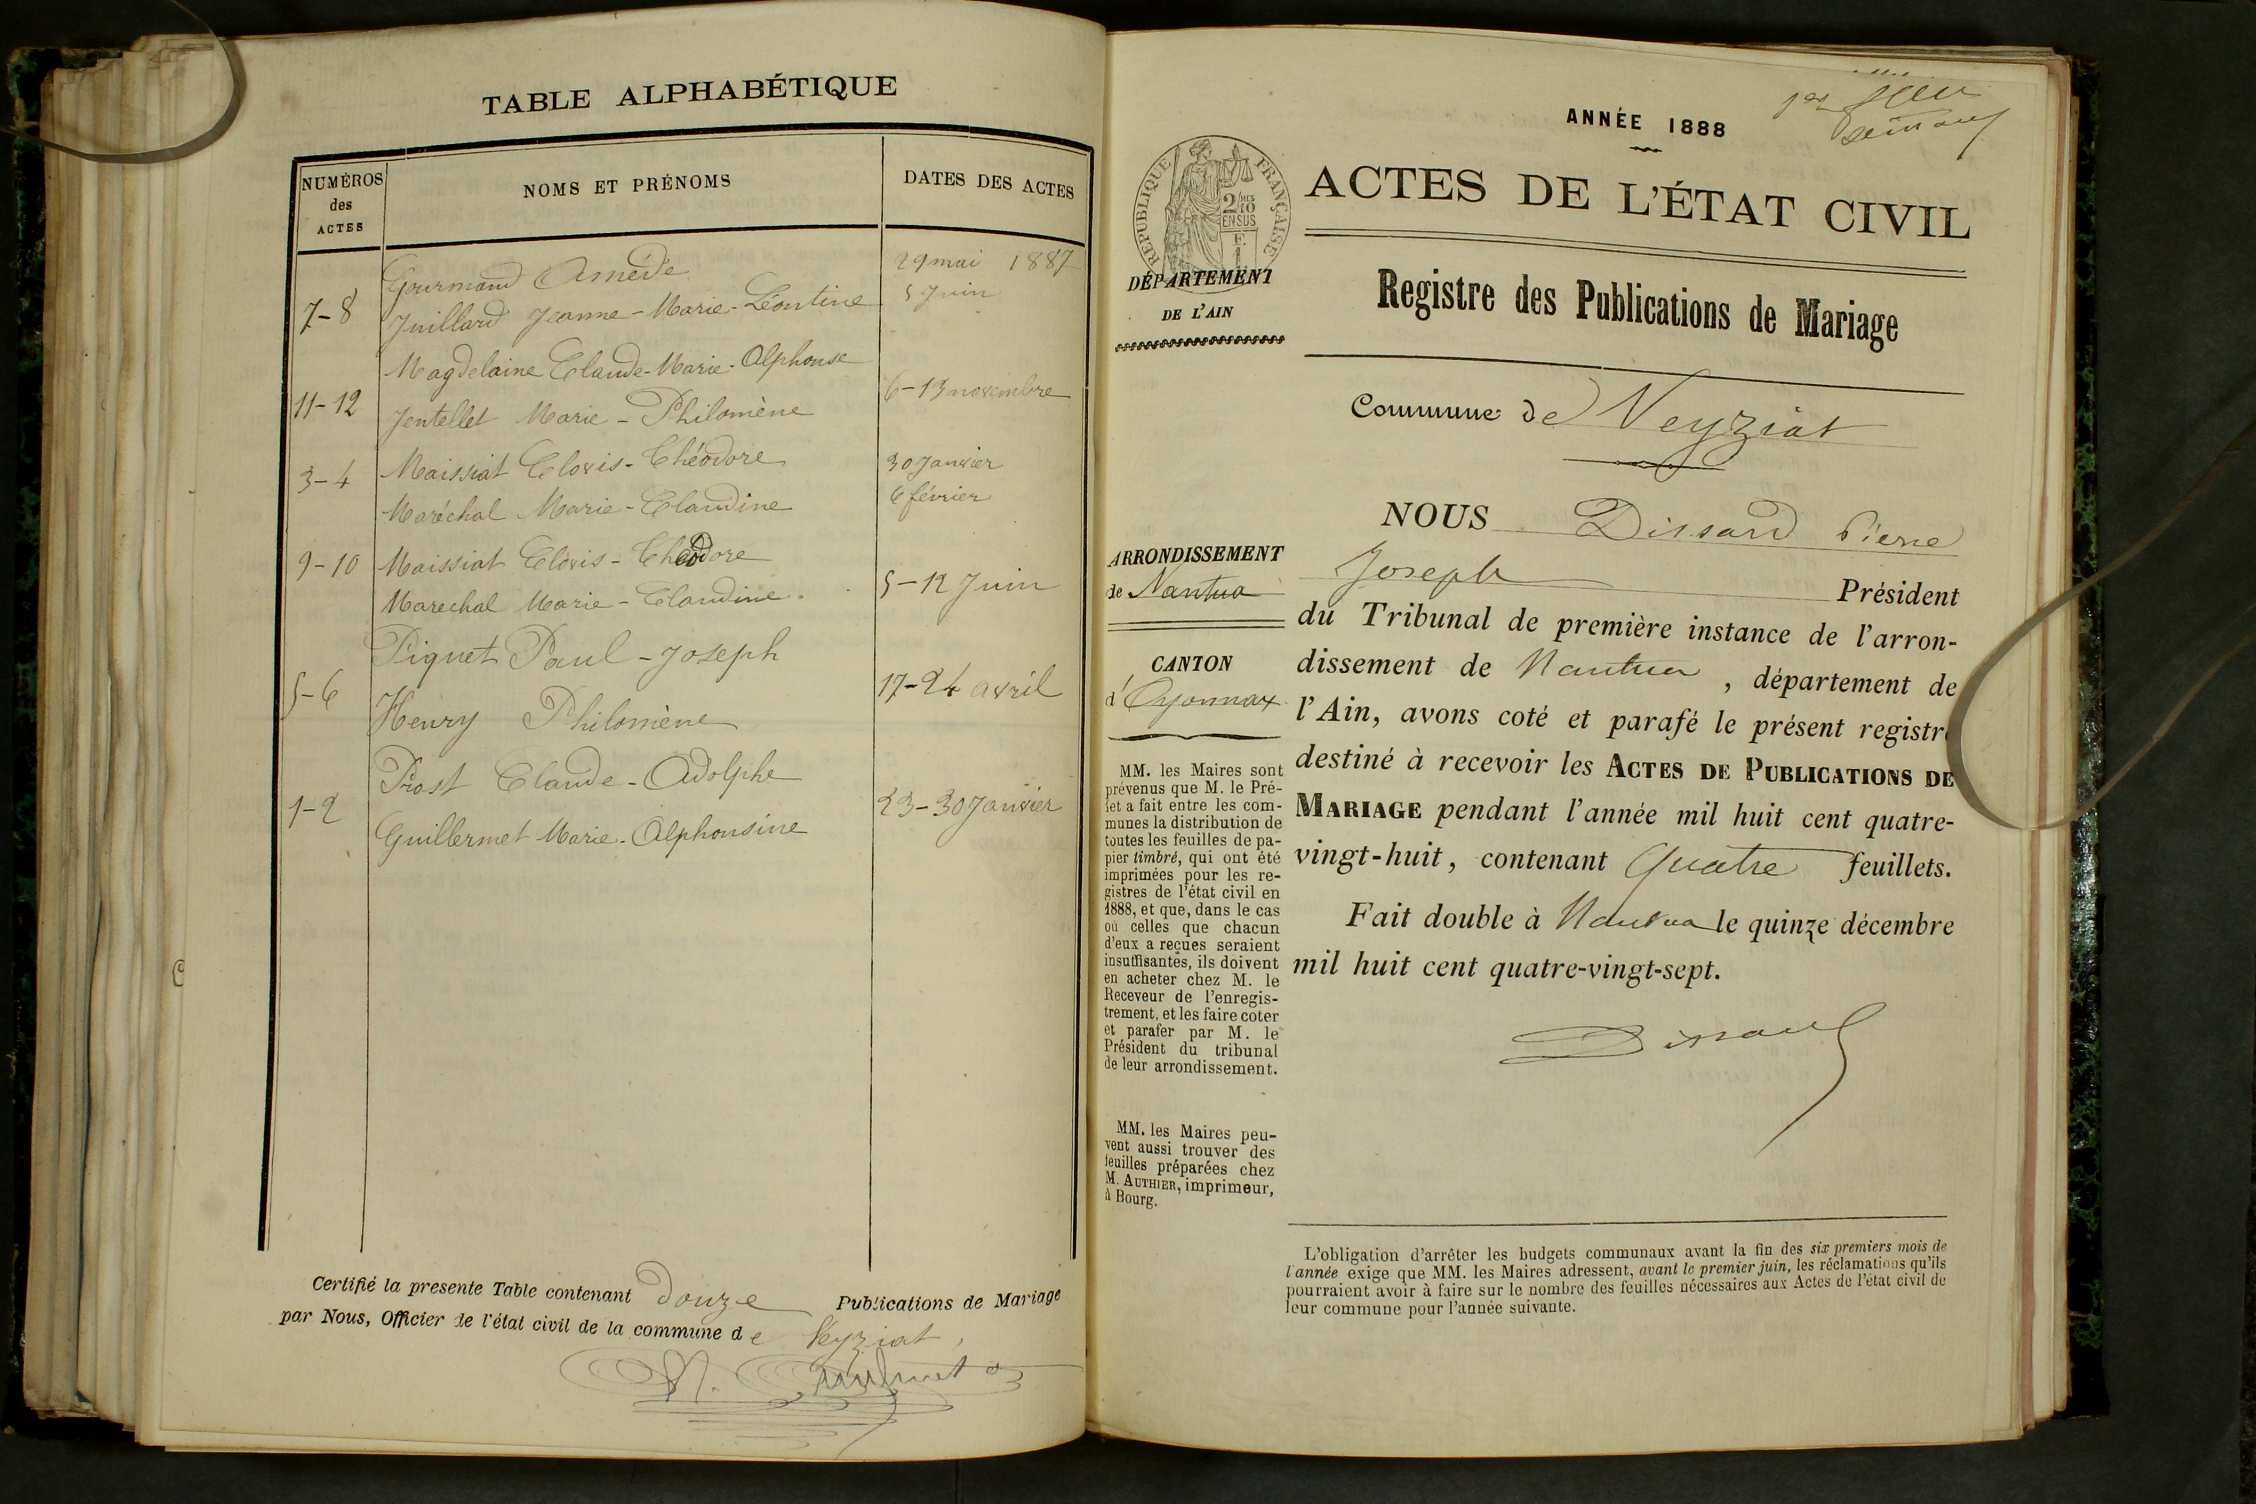 TABLE ALPHABÉTIQUE
NUMÉROS
des
ACTES
NOMS ET PRÉNOMS
DATES DES ACTES
Gourmand Amédé
29 mai 1887
7-8
Juillard Jeanne-Marie-Léontine
5 Juin
Magdelaine Claude-Marie-Alphonse
11-12
6-13 novembre
Jentellet Marie-Philomène
3-4
Maissiat Clovis-Théodore
30 Janvier
Maréchal Marie-Claudine
6 février
9-10
Maissiat Clovis-Théodore
Marechal Marie-Claudine.
5-12 Juin
Piquet Paul-Joseph
5-6
17-24 avril
Henry Philomène
Prost Claude-Adolphe
1-2
23-30 Janvier
Guillermet Marie-Alphonsine
Certifié la presente Table contenant douze Publications de Mariage
par Nous, Officier de l'état civil de la commune de Veyziat,
ANNÉE 1888
RÉPUBLIQUE FRANÇAISE
ACTES DE L'ÉTAT CIVIL
DÉPARTEMENT
DE L'AIN
Registre des Publications de Mariage
Commune de Veyziat
NOUS Dissard Pierre
Joseph Président
du Tribunal de première instance de l'arron-
dissement de Nantua, département de
l'Ain, avons coté et parafé le présent registre
destiné à recevoir les ACTES DE PUBLICATIONS DE
MARIAGE pendant l'année mil huit cent quatre-
vingt-huit, contenant quatre feuillets.
Fait double à Nantua le quinze décembre
mil huit cent quatre-vingt-sept.
Dissard
ARRONDISSEMENT
de Nantua
CANTON
d'Oyonnax
MM. les Maires sont
prévenus que M. le Pré-
fet a fait entre les com-
munes la distribution de
toutes les feuilles de pa-
pier timbré, qui ont été
imprimées pour les re-
gistres de l'état civil en
1888, et que, dans le cas
où celles que chacun
d'eux a reçues seraient
insuffisantes, ils doivent
en acheter chez M. le
Receveur de l'enregis-
trement, et les faire coter
et parafer par M. le
Président du tribunal
de leur arrondissement.
MM. les Maires peu-
vent aussi trouver des
feuilles préparées chez
M. AUTHIER, imprimeur,
à Bourg.
L'obligation d'arrêter les budgets communaux avant la fin des six premiers mois de
l'année exige que MM. les Maires adressent, avant le premier juin, les réclamations qu'ils
pourraient avoir à faire sur le nombre des feuilles nécessaires aux Actes de l'état civil de
leur commune pour l'année suivante.